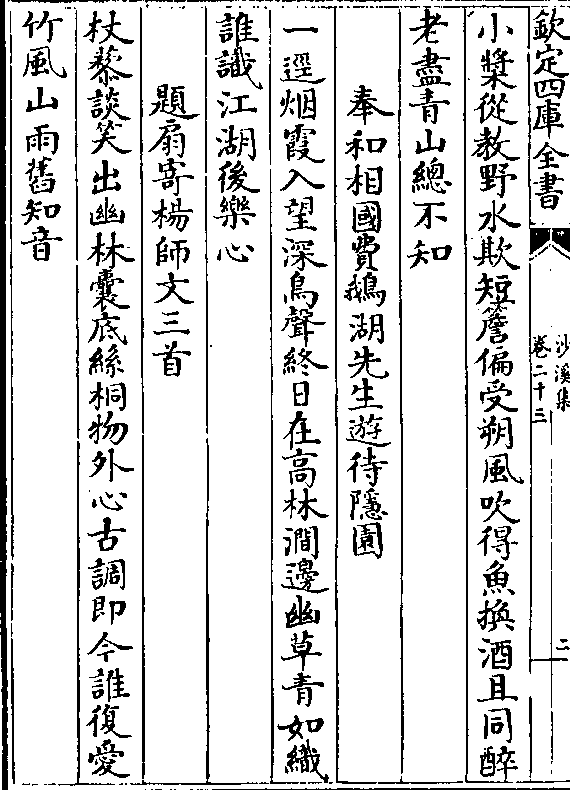 欽定四庫全書
沙溪集
卷二十三
二
小槳從教野水欺短簷偏受朔風吹得魚換酒且同醉
老盡青山總不知
奉和相國費鵝湖先生遊待隱園
一逕烟霞入望深鳥聲終日在高林澗邊幽草青如織
誰識江湖後樂心
題扇寄楊師文三首
杖藜談笑出幽林囊底絲桐物外心古調即今誰復愛
竹風山雨舊知音